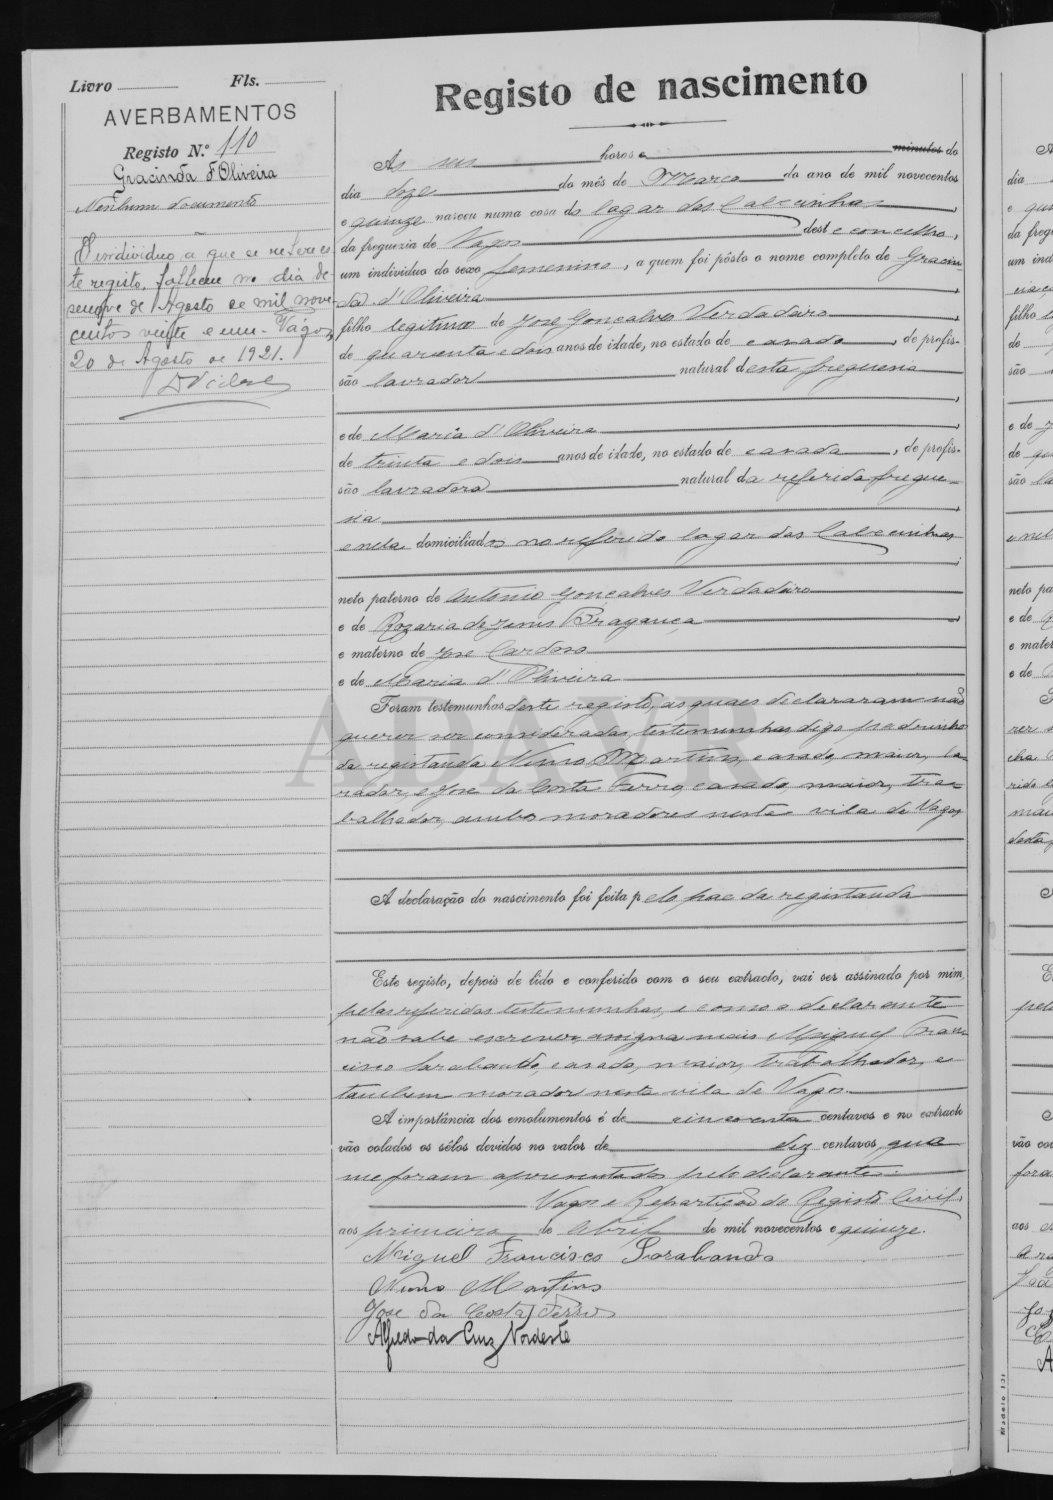 Livro Fls.
AVERBAMENTOS
Registo N.º 110
Gracinda d'Oliveira
Nenhum documento
O individuo a que se refere es
te registo, falleceu no dia de
senove de Agosto de mil nove
centos vinte e um. Vagos,
20 de Agosto de 1921.
Registo de nascimento
Ás seis horas e minutos do
dia doze do mês de Março do ano de mil novecentos
e quinze nasceu numa casa do lagar das Calcinhas
da freguezia de Vagos deste concelho,
um individuo do sexo femenino, a quem foi pôsto o nome completo de Gracin-
da d'Oliveira
filho legitimo de José Gonçalves Verdadeiro
de quarenta e dois anos de idade, no estado de casado, de profis-
são lavrador natural desta freguesia
e de Maria d'Oliveira
de trinta e dois anos de idade, no estado de casada, de profis-
são lavradora natural da referida fregue-
sia
e nela domiciliados no referido lagar das Calcinhas
neto paterno de Antonio Gonçalves Verdadeiro
e de Rozaria de Jesus Bragança
e materno de José Cardoso
e de Maria d'Oliveira
Foram testemunhas deste registo, as quaes declararam não
querer ser consideradas testemunhas digo padrinhos
da registanda Nuno Martins, casado, maior, la-
vrador, e José da Costa Ferro, casado, maior, tra-
balhador, ambos moradores nesta vila de Vagos
A declaração do nascimento foi feita pelo pae da registanda
Este registo, depois de lido e conferido com o seu extracto, vai ser assinado por mim,
pelas referidas testemunhas, e como o declarante
não sabe escrever assigna mais Miguel Fran-
cisco Sarabando, casado, maior, trabalhador, e
tambem morador nesta vila de Vagos
A importância dos emolumentos é de cincoenta centavos e no extracto
vão colados os sêlos devidos no valor de dez centavos, que
me foram apresentados pelo declarante.
Vagos e Repartição do Registo Civil,
aos primeiro de Abril de mil novecentos e quinze.
Miguel Francisco Sarabando
Nuno Martins
José da Costa Ferro
Alfredo da Cruz Nordeste
ADAVR
Modelo 131